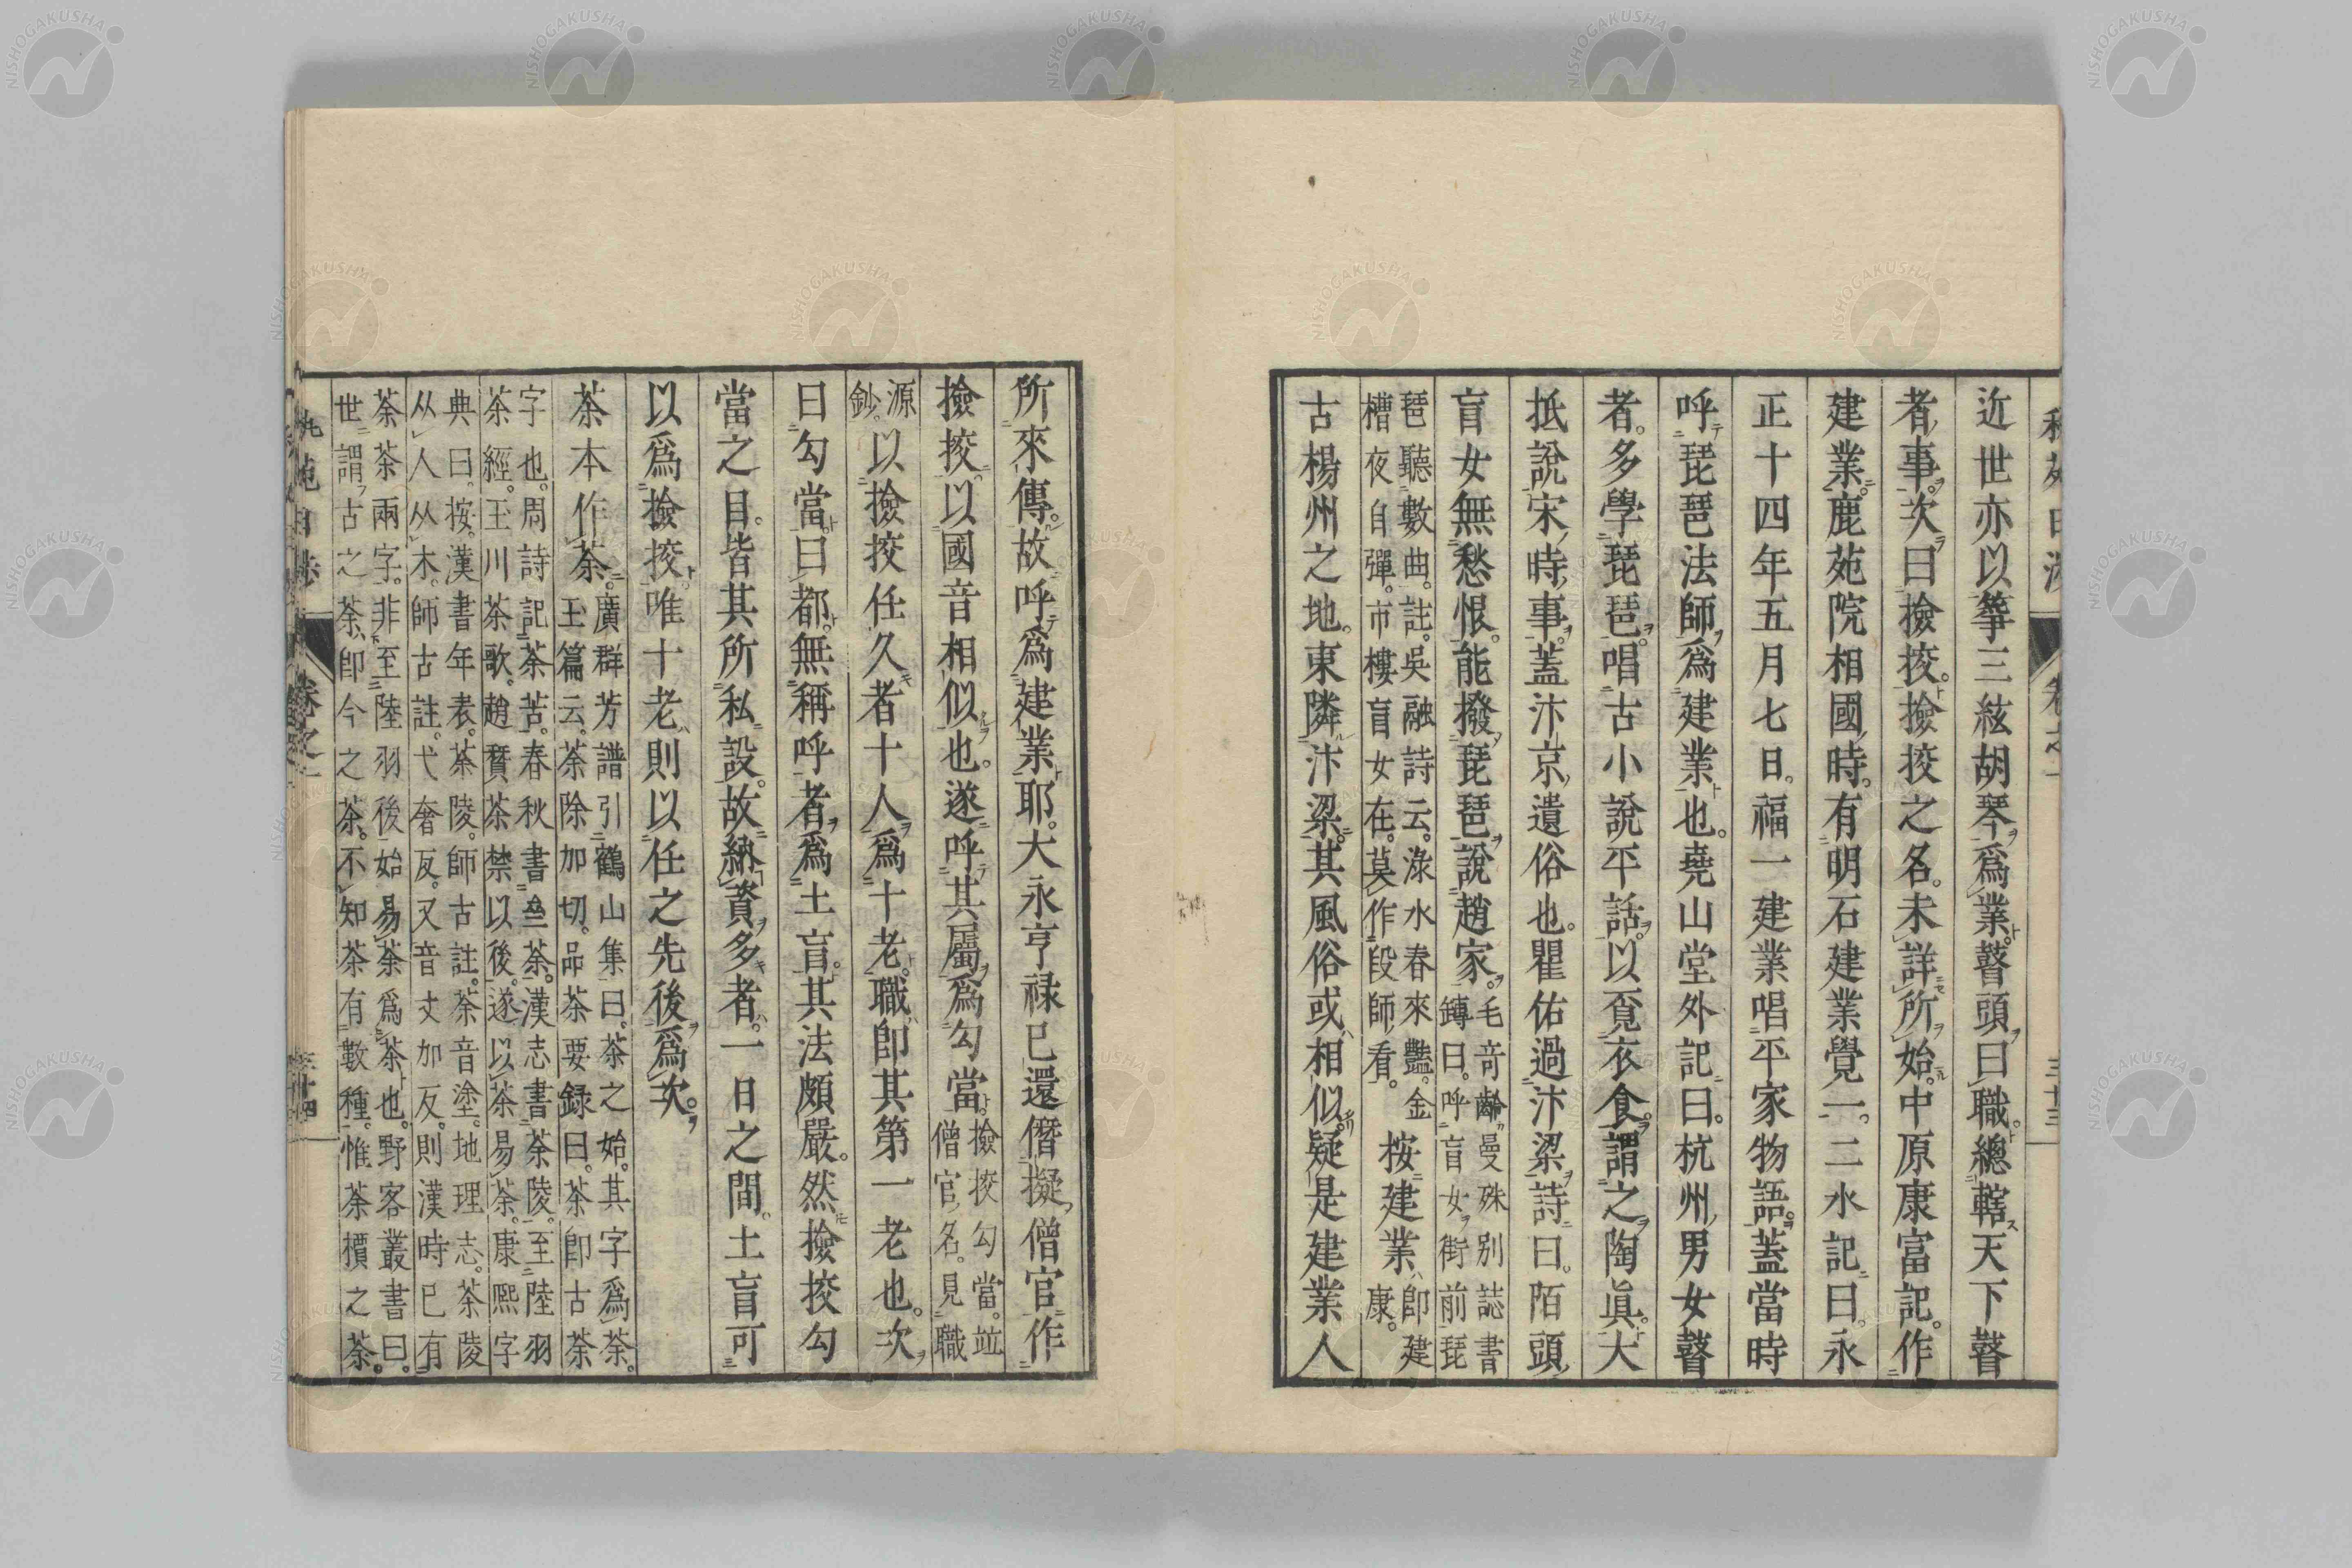 近世亦以箏三絃胡琴爲業瞽頭曰職總轄天下瞽
者事次曰撿挍撿挍之名未詳所始中原康富記作
建業鹿苑院相國時有明石建業覺一二水記曰永
正十四年五月七日福一建業唱平家物語蓋當時
呼琵琶法師爲建業也堯山堂外記曰杭州男女瞽
者多學琵琶唱古小說平話以覓衣食謂之陶眞大
抵說宋時事蓋汴京遺俗也瞿佑過汴梁詩曰陌頭
盲女無愁恨能撥琵琶說趙家毛奇齡曼殊別誌書
鏄曰呼盲女街前琵
琶聽數曲註吳融詩云淥水春來豔金
槽夜自彈市樓盲女在莫作段師看按建業卽建
康
古楊州之地東隣汴梁其風俗或相似疑是建業人
所來傳故呼爲建業耶大永亨祿已還僭擬僧官作
撿挍以國音相似也遂呼其屬爲勾當撿挍勾當竝
僧官名見職
源
鈔以撿挍任久者十人爲十老職卽其第一老也次
曰勾當曰都無稱呼者爲土盲其法頗嚴然撿挍勾
當之目皆其所私設故納資多者一日之間土盲可
以爲撿挍唯十老則以任之先後爲次
茶本作荼廣群芳譜引鶴山集曰茶之始其字爲荼
玉篇云荼除加切品茶要錄曰茶卽古荼
字也周詩記荼苦春秋書齊荼漢志書荼陵至陸羽
茶經玉川茶歌趙贊茶禁以後遂以茶易荼康熙字
典曰按漢書年表荼陵師古註荼音塗地理志荼陵
从人从木師古註弋奢反又音丈加反則漢時已有
荼茶兩字非至陸羽後始易荼爲茶也野客叢書曰
世謂古之荼卽今之茶不知荼有數種惟荼檟之荼